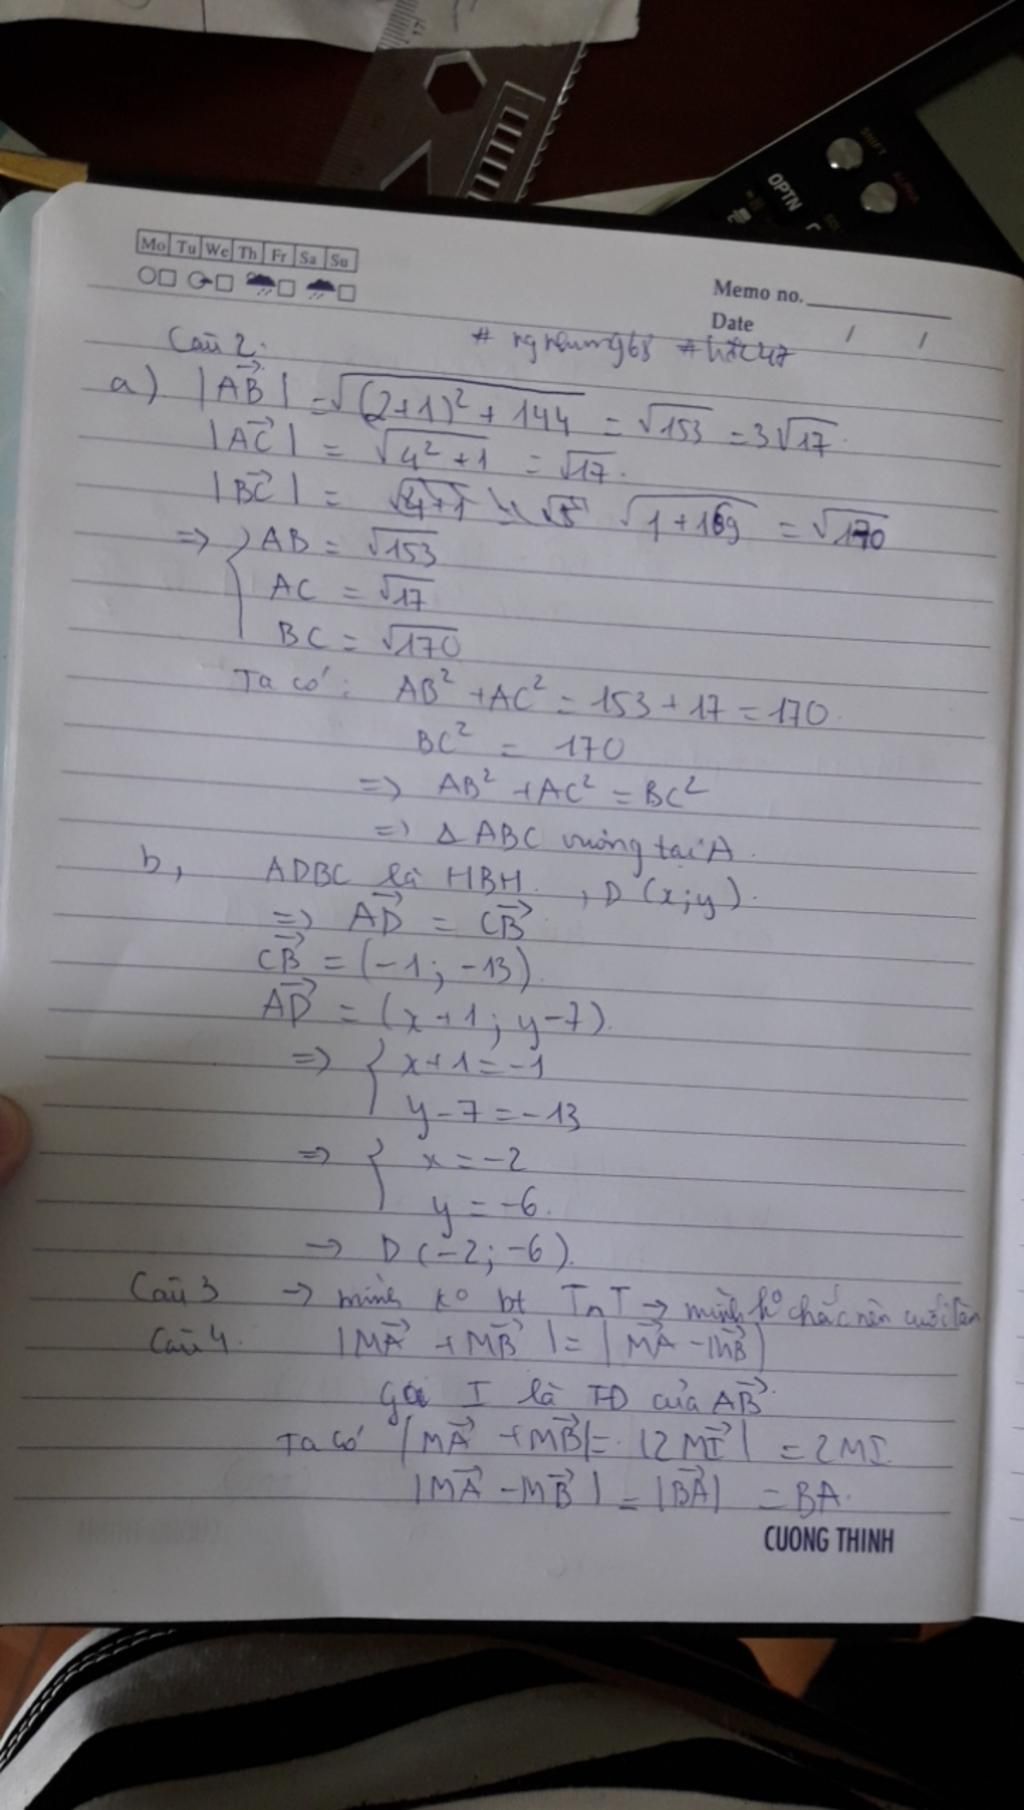 Mo Tu We Th Fr Sa Su
Memo no.
Date / /
SHIFT
ALPHA
OPTN
Câu 2:
a) |AB→| = √((2+1)² + 144) = √153 = 3√17.
|AC→| = √(4²+1) = √17.
|BC→| = √(1+169) = √170
=> { AB = √153
AC = √17
BC = √170
Ta có: AB² + AC² = 153 + 17 = 170.
BC² = 170
=> AB² + AC² = BC²
=> Δ ABC vuông tại A.
b, ADBC là HBH, D(x;y).
=> AD→ = CB→
CB→ = (-1; -13).
AD→ = (x+1; y-7).
=> { x+1 = -1
y-7 = -13
=> { x = -2
y = -6.
-> D(-2; -6).
Câu 3 -> mình ko bt TnT -> mình ko chắc nên
Câu 4. |MA→ + MB→| = |MA→ - MB→|
Gọi I là TĐ của AB→.
Ta có |MA→ + MB→| = |2MI→| = 2MI.
|MA→ - MB→| = |BA→| = BA.
CUONG THINH